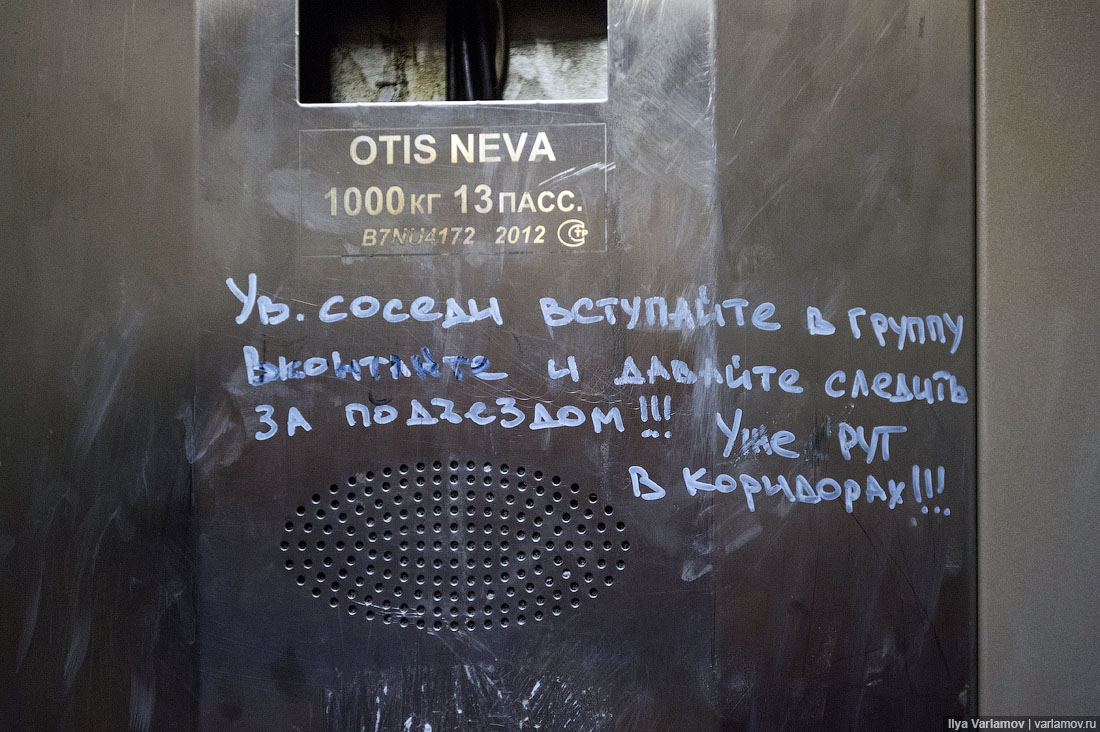 OTIS NEVA
1000 КГ 13 ПАСС.
B7NU4172 2012
Ув. соседи вступайте в группу
Вконтакте и давайте следить
за подъездом!!! Уже рут
в коридорах!!!
Ilya Varlamov | varlamov.ru